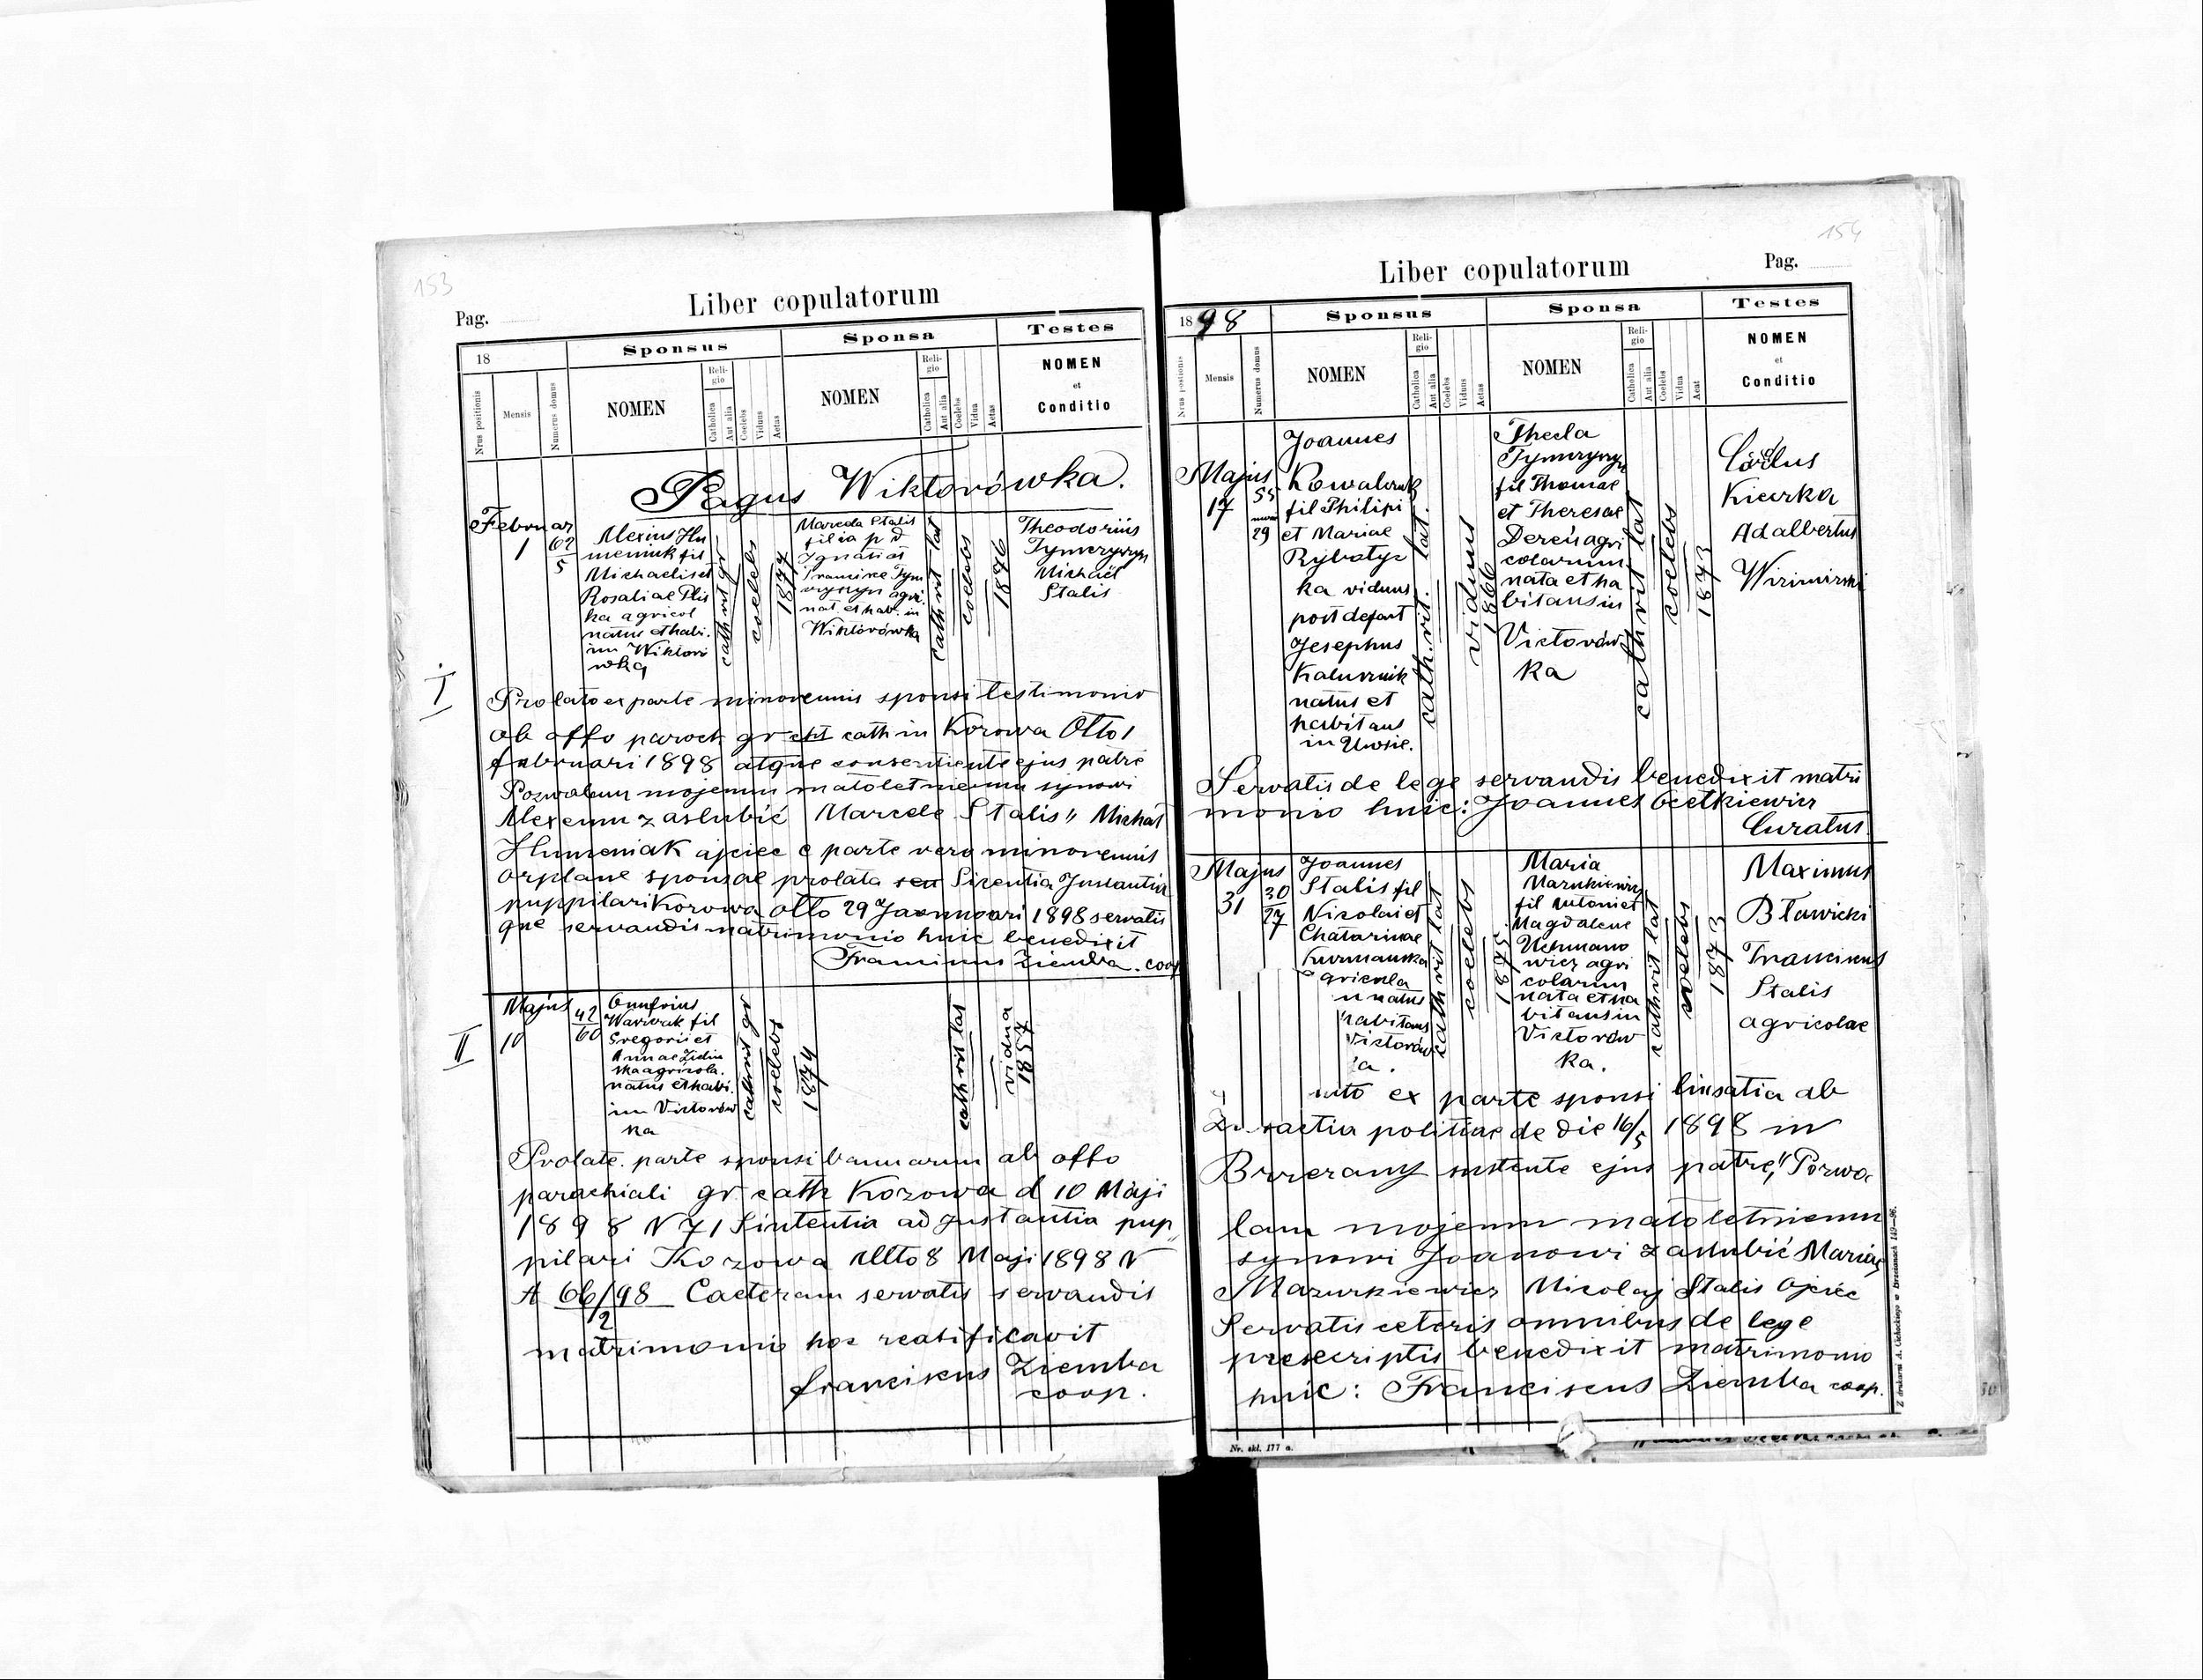 153
Liber copulatorum
Pag.
18
Sponsus
Sponsa
Testes
Nrus positionis
Mensis
Numerus domus
NOMEN
Religio
Catholica
Aut alia
Coelebs
Viduus
Aetas
NOMEN
Religio
Catholica
Aut alia
Coelebs
Vidua
Aetas
NOMEN
et
Conditio
Pagus Wiktorówka.
I
Februar
1
62
5
Alexius Hu
meniuk fil
Michaelis et
Rosaliae Plis
ka agricol
natus et habi.
in Wiktoró
wka
cath rit gr
coelebs
1874
Marcela Stalis
filia p d
Ignatii et
Francisce Tym
agri.
nat. et hab. in
Wiktorówka
cath rit lat
coelebs
1876
Theodorius
Tymczyszyn
Michael
Stalis
Prolato ex parte minorennis sponsi testimonio
ab offo paroch gr cath in Kozowa dtto 1
februari 1898 atque consentiente ejus patre
Pozwalam mojemu małoletniemu synowi
Alexemu zaslubić Marcele Stalis" Michał
Humeniak ojciec e parte vero minorennis
orplane sponsae prolata Sizentia Justantia
puppilari Kozowa dtto 29 Januari 1898 servatis
que servandis matrimonio huic benedixit
Franciscus Ziemba. coop
II
Majus
10
42
60
Onufrius
Wawruk fil
Gregorii et
Annae
ska agricola.
natus et habi.
in Victorów
ka
cath rit gr
coelebs
1874
cath rit lat
vidua
1857
Prolate. parte sponsi bannarum ab offo
parachiali gr cath Kozowa d 10 Maji
1898 N 71 Sintentia ad Justantia pup
pilari Kozowa dtto 8 Maji 1898 N
A 66/98 Caeteram servatis servandis
2
matrimonio hoc reatificavit
franciscus Ziemba
coop.
154
Liber copulatorum
Pag.
1898
Sponsus
Sponsa
Testes
Nrus positionis
Mensis
Numerus domus
NOMEN
Religio
Catholica
Aut alia
Coelebs
Viduus
Aetas
NOMEN
Religio
Catholica
Aut alia
Coelebs
Vidua
Aeat
NOMEN
et
Conditio
Majus
17
55
29
Joannes
Kowalczuk
fil Philipi
et Mariae
Rybotyc
ka viduus
post defont
Jesephus
natus et
habitans
in Uwsie.
cath. rit. lat.
viduus
1866
Thecla
Tymczyszyn
fil Thomae
et Theresae
Dereń agri
colarum
nata et ha
bitans in
Victorów
ka
cath rit lat
coelebs
1873
Kicurka
Adalbertus
Servatis de lege servandis benedixit matri
monio huic: Joannes
Curatus.
Majus
31
30
27
Joannes
Stalis fil
Nicolai et
Chatarinae
Kurmanska
gricola
natus
habitans
Victorów
a.
cath rit lat
coelebs
1875
Maria
Mazukiewicz
fil Antoni et
Magdalene
Uchmano
wicz agri
colarum
nata et ha
bitans in
Victorów
ka.
cath rit lat
coelebs
1873
Maximus
Bławicki
Franciscus
Stalis
agricolae
ex parte sponsi linsatia ab
politiae de die 16/5 1898 in
Brzerany ejus patre," Pozwo
lam mojemu małoletniemu
synowi Joanowi zaslubić Marią
Mazurkiewicz Nicolaj Stalis Ojciec
Servatis ceteris omnibus de lege
prescriptis benedixit matrimonio
huic: Franciscus Ziemba coop.
Nr. skl. 177 a.
Z drukarni A. Cichockiego w Brzeżanach 149—96.